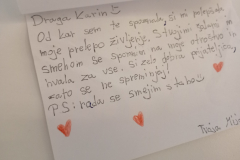 Draga Karin Š
Oj kar sem te spoznala, si mi polepšala
moje prelepo življenje. S tvojimi šalami in
smehom se spomnem na moje otroštvo in
hvala za vse. Si zelo dobra prijateljica,
zato se ne spreminjaj!
P.S.: rada se smejim s tabo
Tvoja